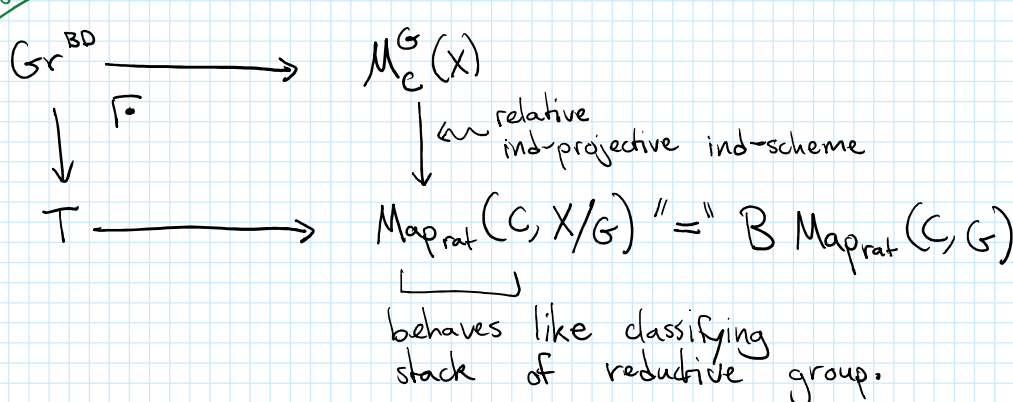 Gr^BD → M_C^G(X)
relative
ind-projective ind-scheme
T → Map_rat(C, X/G) "=" B Map_rat(C, G)
behaves like classifying
stack of reductive group.